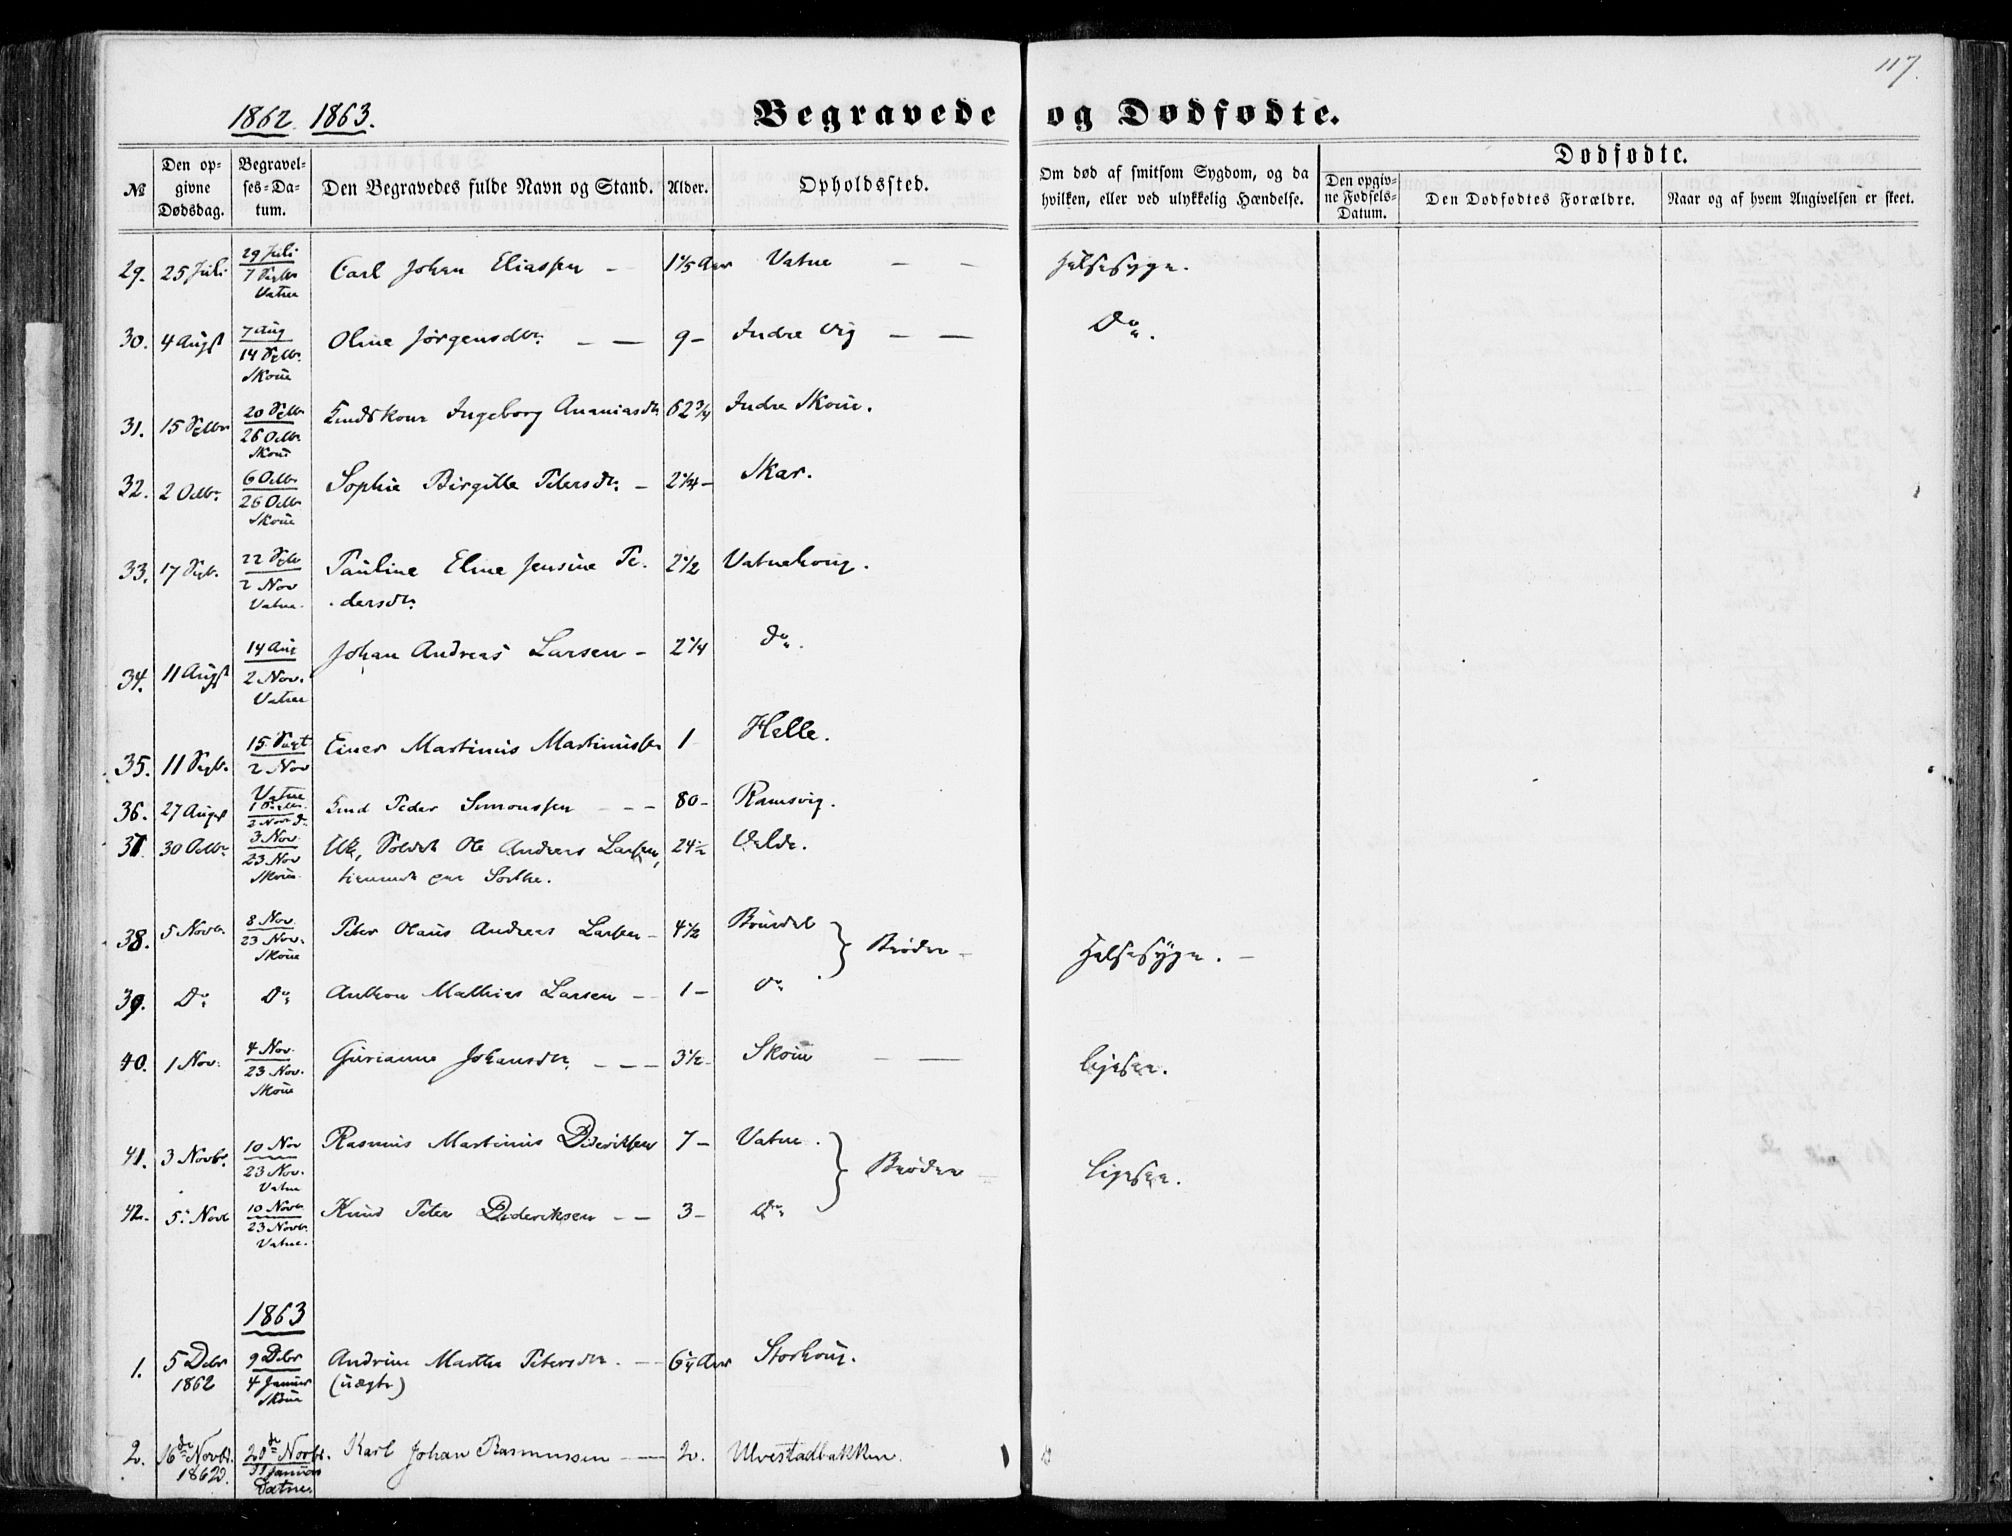 117.
1862. 1863.
Begravede og Dødfødte.
№
Den opgivne Dødsdag.
Begravelses-Datum.
Den Begravedes fulde Navn og Stand.
Alder.
Opholdssted.
Om død af smitsom Sygdom, og da hvilken, eller ved ulykkelig Hændelse.
Dødfødte.
Den opgivne Fødsels-Datum.
Den Dødfødtes Forældre.
Naar og af hvem Angivelsen er skeet.
29. 25 Juli 29 Juli Carl Johan Eliassen – 1 1/5 Aar Vatne – – Halsesyge.
7 Septbr
Vatne
30. 4 Augst 7 Aug Oline Jørgensdtr. – – 9 – Indre Vig – – Do.
14 Septbr.
Skoue
31. 15 Septbr 20 Septbr Ingeborg Ananiasdtr 62 3/4 Indre Skoue.
26 Octbr
Skoue
32. 2 Octbr. 6 Octbr Sophie Birgitte Petersdtr. – 2 1/4 – Skar.
26 Octbr
Skoue
33. 17 Septbr. 22 Septbr Pauline Eline Jensine Pe- 2 1/2 Vatnehoug.
2 Nov dersdtr.
Vatne.
34. 11 Augst 14 Aug Johan Andreas Larsen – 2 1/4 Do.
2 Nov.
Vatne
35. 11 Septbr. 15 Sept Einer Martinus Martinussen 1 Helle.
2 Nov
Vatne
36. 27 Augst 1 Septbr. Peder Simonssen – – – 80 – Ramsvig.
2 Nov. Do
37. 30 Octbr. 3 Nov. Soldat Ole Andreas Larsen, 24 1/2
23 Nov
Skoue
38. 5 Novbr. 8 Nov. Peter Olaus Andreas Larsen – 4 1/2 Brusdal } Brødre – Halsesyge. –
23 Nov.
Skoue
39. Do Do Anthon Mathias Larsen – – 1 – Do
40. 1 Nov. 4 Nov. Gurianne Johansdtr. – – – 3 1/2 – Skoue – – ligesaa.
23 Nov.
Skoue
41. 3 Novbr. 10 Nov Rasmus Martinus Dideriksen 7 – Vatne. } Brødre – ligesaa.
23 Nov.
Vatne
42. 5. Novbr 10 Novbr. Knud Peter Dideriksen – – 3 – Do
23 Novbr.
Vatne.
1863
1. 5 Debr 9 Debr Andrine Marthe Petersdtr. – – 6 1/4 Aar Storhoug.
1862 4 Januar (uægte)
Skoue
2. 16de Novbr. 20de Novbr. Karl Johan Rasmussen – – 2. Ulvestadbakken.
1862. 11 Januar
Vatne.